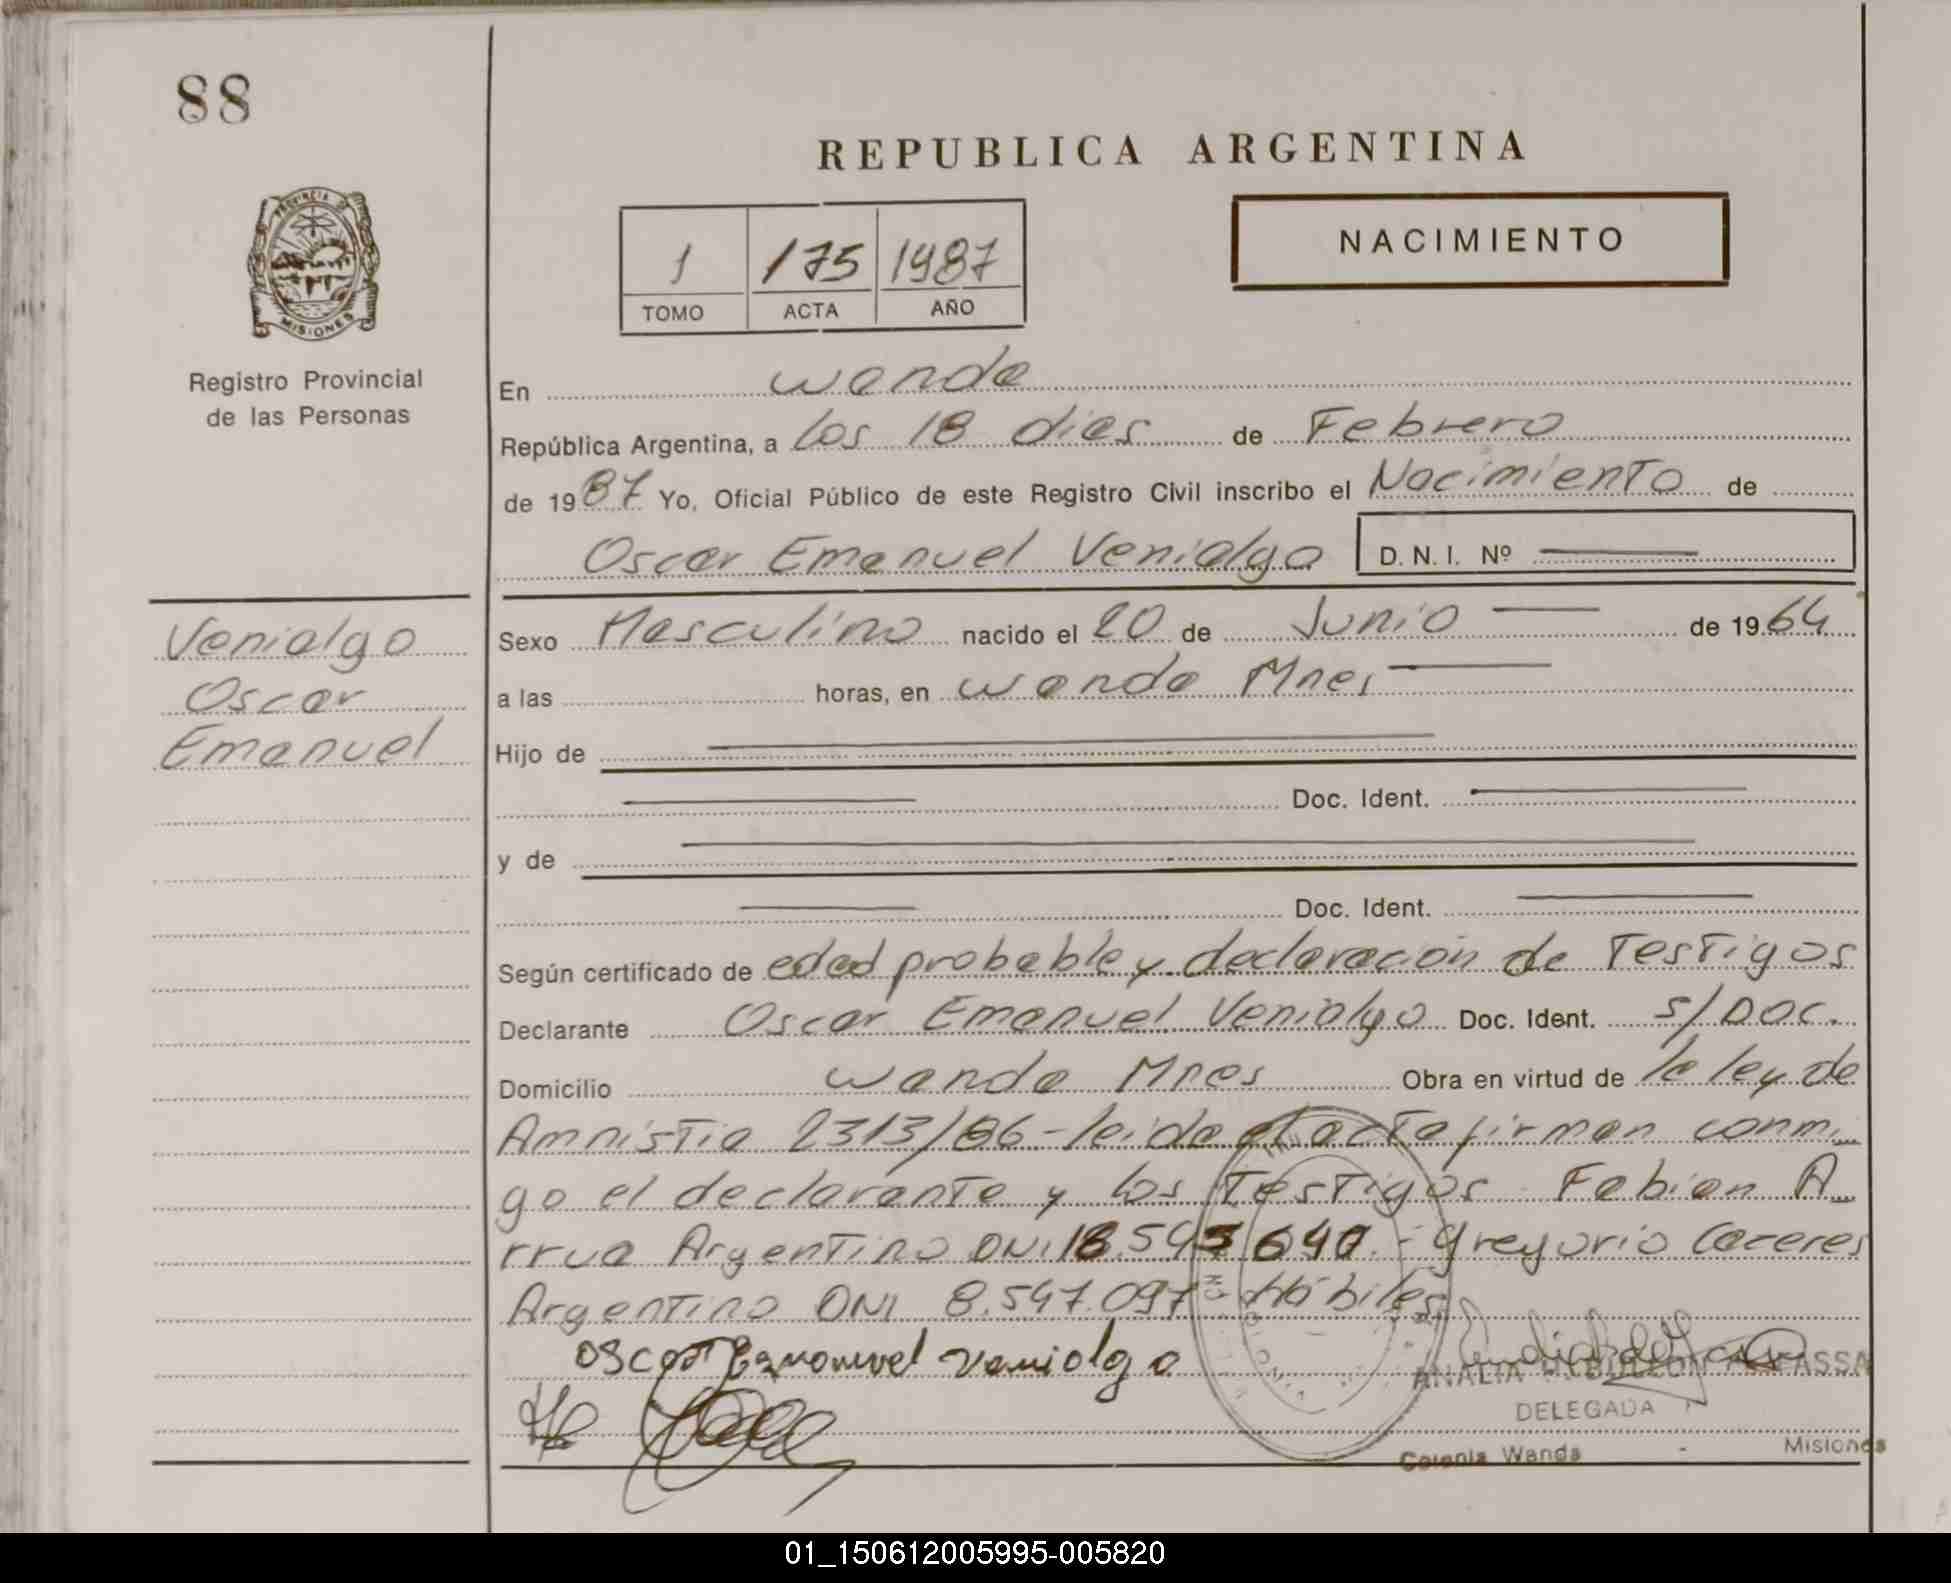 88
REPUBLICA ARGENTINA
PROVINCIA DE
MISIONES
1 175 1987
TOMO ACTA AÑO
NACIMIENTO
Registro Provincial
de las Personas
En Wanda
República Argentina, a los 18 dias de Febrero
de 1987 Yo, Oficial Público de este Registro Civil inscribo el Nacimiento de
Oscar Emanuel Venialgo D. N. I. Nº
Venialgo
Oscar
Emanuel
Sexo Masculino nacido el 20 de Junio de 1964
a las horas, en Wanda Mnes
Hijo de
Doc. Ident.
y de
Doc. Ident.
Según certificado de edad probable y declaración de Testigos
Declarante Oscar Emanuel Venialgo Doc. Ident. s/DOC.
Domicilio Wanda Mnes Obra en virtud de la ley de
Amnistia 2313/86 - leida el acta firman conmi
go el declarante y los Testigos Fabian A
rrua Argentino DNI 18.543 640. - Gregorio Caceres
Argentino DNI 8.547.097 Hábiles
Oscar Emanuel Venialgo
ANALIA
DELEGADA
Colonia Wanda - Misiones
01_150612005995-005820